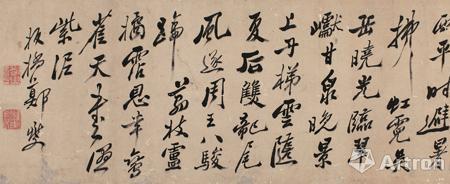 平时避暑
拂虹霓
岳晓光临翠
巘甘泉晚景
上丹梯云随
夏后双龙尾
风逐周王八骏
蹄荔枝卢
橘沾恩幸鸾
雀天书湿
紫泥
板桥郑燮
Artron